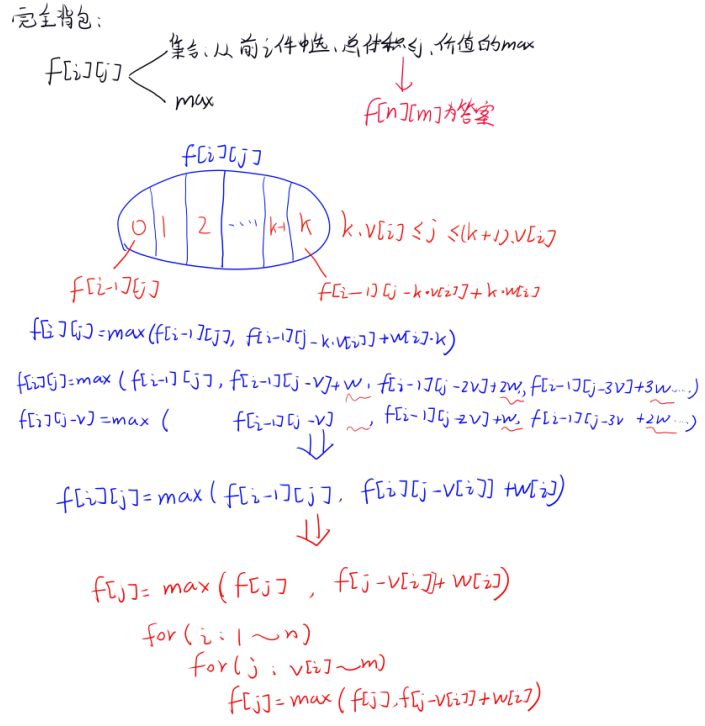 完全背包:
f[i][j]
集合: 从前i件中选、总体积≤j、价值的max
max
f[n][m]为答案
f[i][j]
0 1 2 ····· k-1 k
k·v[i] ≤ j ≤ (k+1)·v[i]
f[i-1][j]
f[i-1][j-k·v[i]]+k·w[i]
f[i][j]=max(f[i-1][j], f[i-1][j-k·v[i]]+w[i]·k)
f[i][j]=max(f[i-1][j], f[i-1][j-v]+w, f[i-1][j-2v]+2w, f[i-1][j-3v]+3w·····)
f[i][j-v]=max( f[i-1][j-v] , f[i-1][j-2v]+w, f[i-1][j-3v +2w····)
f[i][j]=max(f[i-1][j], f[i][j-v[i]]+w[i])
f[j]= max(f[j] , f[j-v[i]]+w[i])
for(i: 1~n)
for(j: v[i]~m)
f[j]=max(f[j],f[j-v[i]]+w[i])